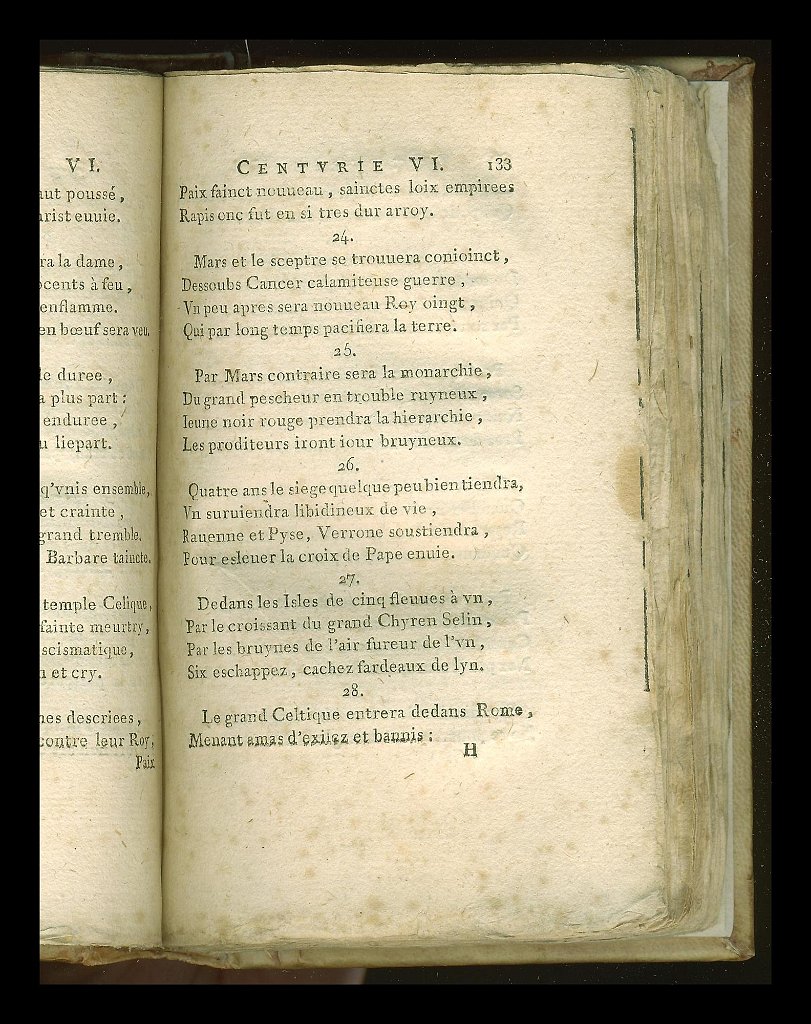 VI.
ut poussé,
rist euuie.
ra la dame,
ocents à feu,
enflamme.
en bœuf sera veu.
le duree,
a plus part :
enduree,
u liepart.
q'vnis ensemble,
et crainte,
grand tremble.
Barbare taincte.
temple Celique,
fainte meurtry,
scismatique,
n et cry.
nes descriees,
contre leur Roy,
Paix
CENTVRIE VI. 133
Paix fainct nouueau, sainctes loix empirees
Rapis onc fut en si tres dur arroy.
24.
Mars et le sceptre se trouuera conioinct,
Dessoubs Cancer calamiteuse guerre,
Vn peu apres sera nouueau Roy oingt,
Qui par long temps pacifiera la terre.
25.
Par Mars contraire sera la monarchie,
Du grand pescheur en trouble ruyneux,
Ieune noir rouge prendra la hierarchie,
Les proditeurs iront iour bruyneux.
26.
Quatre ans le siege quelque peu bien tiendra,
Vn suruiendra libidineux de vie,
Rauenne et Pyse, Verrone soustiendra,
Pour esleuer la croix de Pape enuie.
27.
Dedans les Isles de cinq fleuues à vn,
Par le croissant du grand Chyren Selin,
Par les bruynes de l'air fureur de l'vn,
Six eschappez, cachez fardeaux de lyn.
28.
Le grand Celtique entrera dedans Rome,
Menant amas d'exilez et bannis :
H